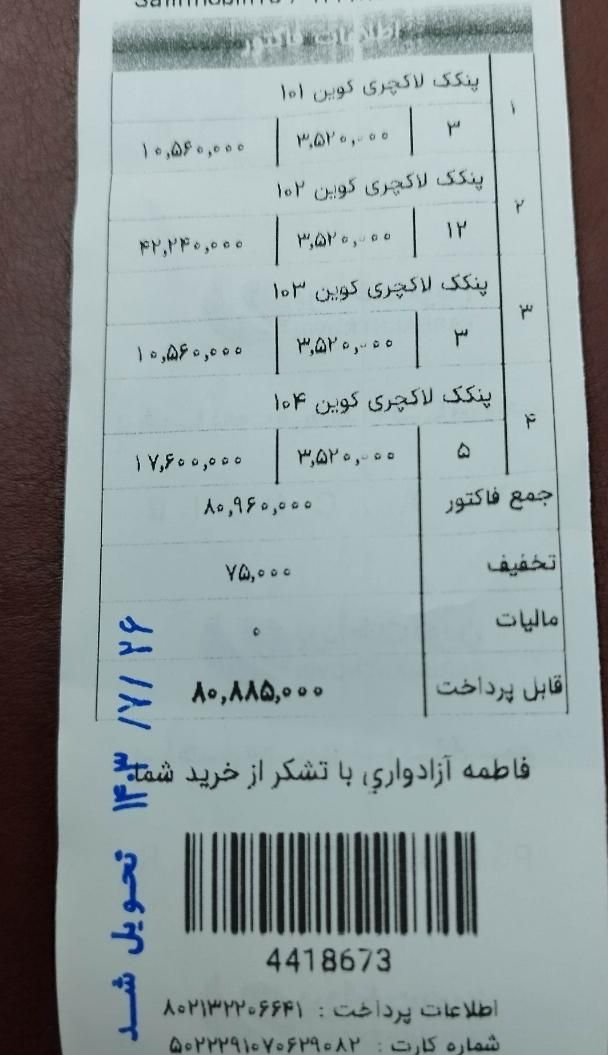 اطلاعات فاکتور
۱
پنکک لاکچری کوین ۱۰۱
۳ ۳,۵۲۰,۰۰۰ ۱۰,۵۶۰,۰۰۰
۲
پنکک لاکچری کوین ۱۰۲
۱۲ ۳,۵۲۰,۰۰۰ ۴۲,۲۴۰,۰۰۰
۳
پنکک لاکچری کوین ۱۰۳
۳ ۳,۵۲۰,۰۰۰ ۱۰,۵۶۰,۰۰۰
۴
پنکک لاکچری کوین ۱۰۴
۵ ۳,۵۲۰,۰۰۰ ۱۷,۶۰۰,۰۰۰
جمع فاکتور ۸۰,۹۶۰,۰۰۰
تخفیف ۷۵,۰۰۰
مالیات ۰
قابل پرداخت ۸۰,۸۸۵,۰۰۰
فاطمه آزادواري با تشکر از خرید شما
4418673
اطلاعات پرداخت : ۸۰۲۱۳۲۲۰۶۶۴۱
شماره کارت : ۵۰۲۲۲۹۱۰۷۰۶۲۹۰۸۲
تحویل شد ۱۴۰۳/۷/۲۶